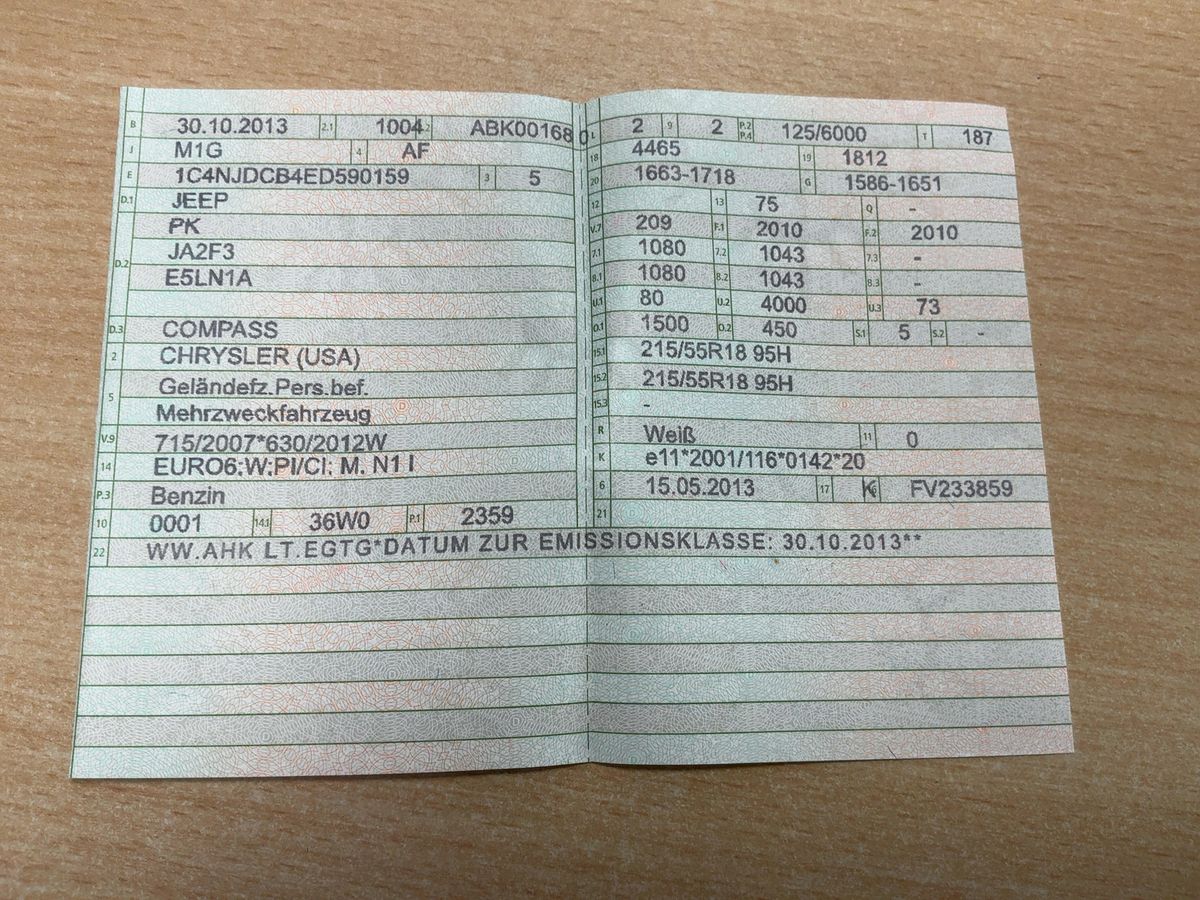 B 30.10.2013 2.1 1004 2.2 ABK00168 0
J M1G 4 AF
E 1C4NJDCB4ED590159 3 5
D.1 JEEP
PK
D.2 JA2F3
E5LN1A
D.3 COMPASS
2 CHRYSLER (USA)
5 Geländefz.Pers.bef.
Mehrzweckfahrzeug
V.9 715/2007*630/2012W
14 EURO6;W;PI/CI; M, N1 I
P.3 Benzin
10 0001 14.1 36W0 P.1 2359
L 2 9 2 P.2 P.4 125/6000 T 187
18 4465 19 1812
20 1663-1718 G 1586-1651
12 13 75 Q -
V.7 209 F.1 2010 F.2 2010
7.1 1080 7.2 1043 7.3 -
8.1 1080 8.2 1043 8.3 -
U.1 80 U.2 4000 U.3 73
O.1 1500 O.2 450 S.1 5 S.2 -
15.1 215/55R18 95H
15.2 215/55R18 95H
15.3 -
R Weiß 11 0
K e11*2001/116*0142*20
6 15.05.2013 17 K FV233859
21
22 WW.AHK LT.EGTG*DATUM ZUR EMISSIONSKLASSE: 30.10.2013**